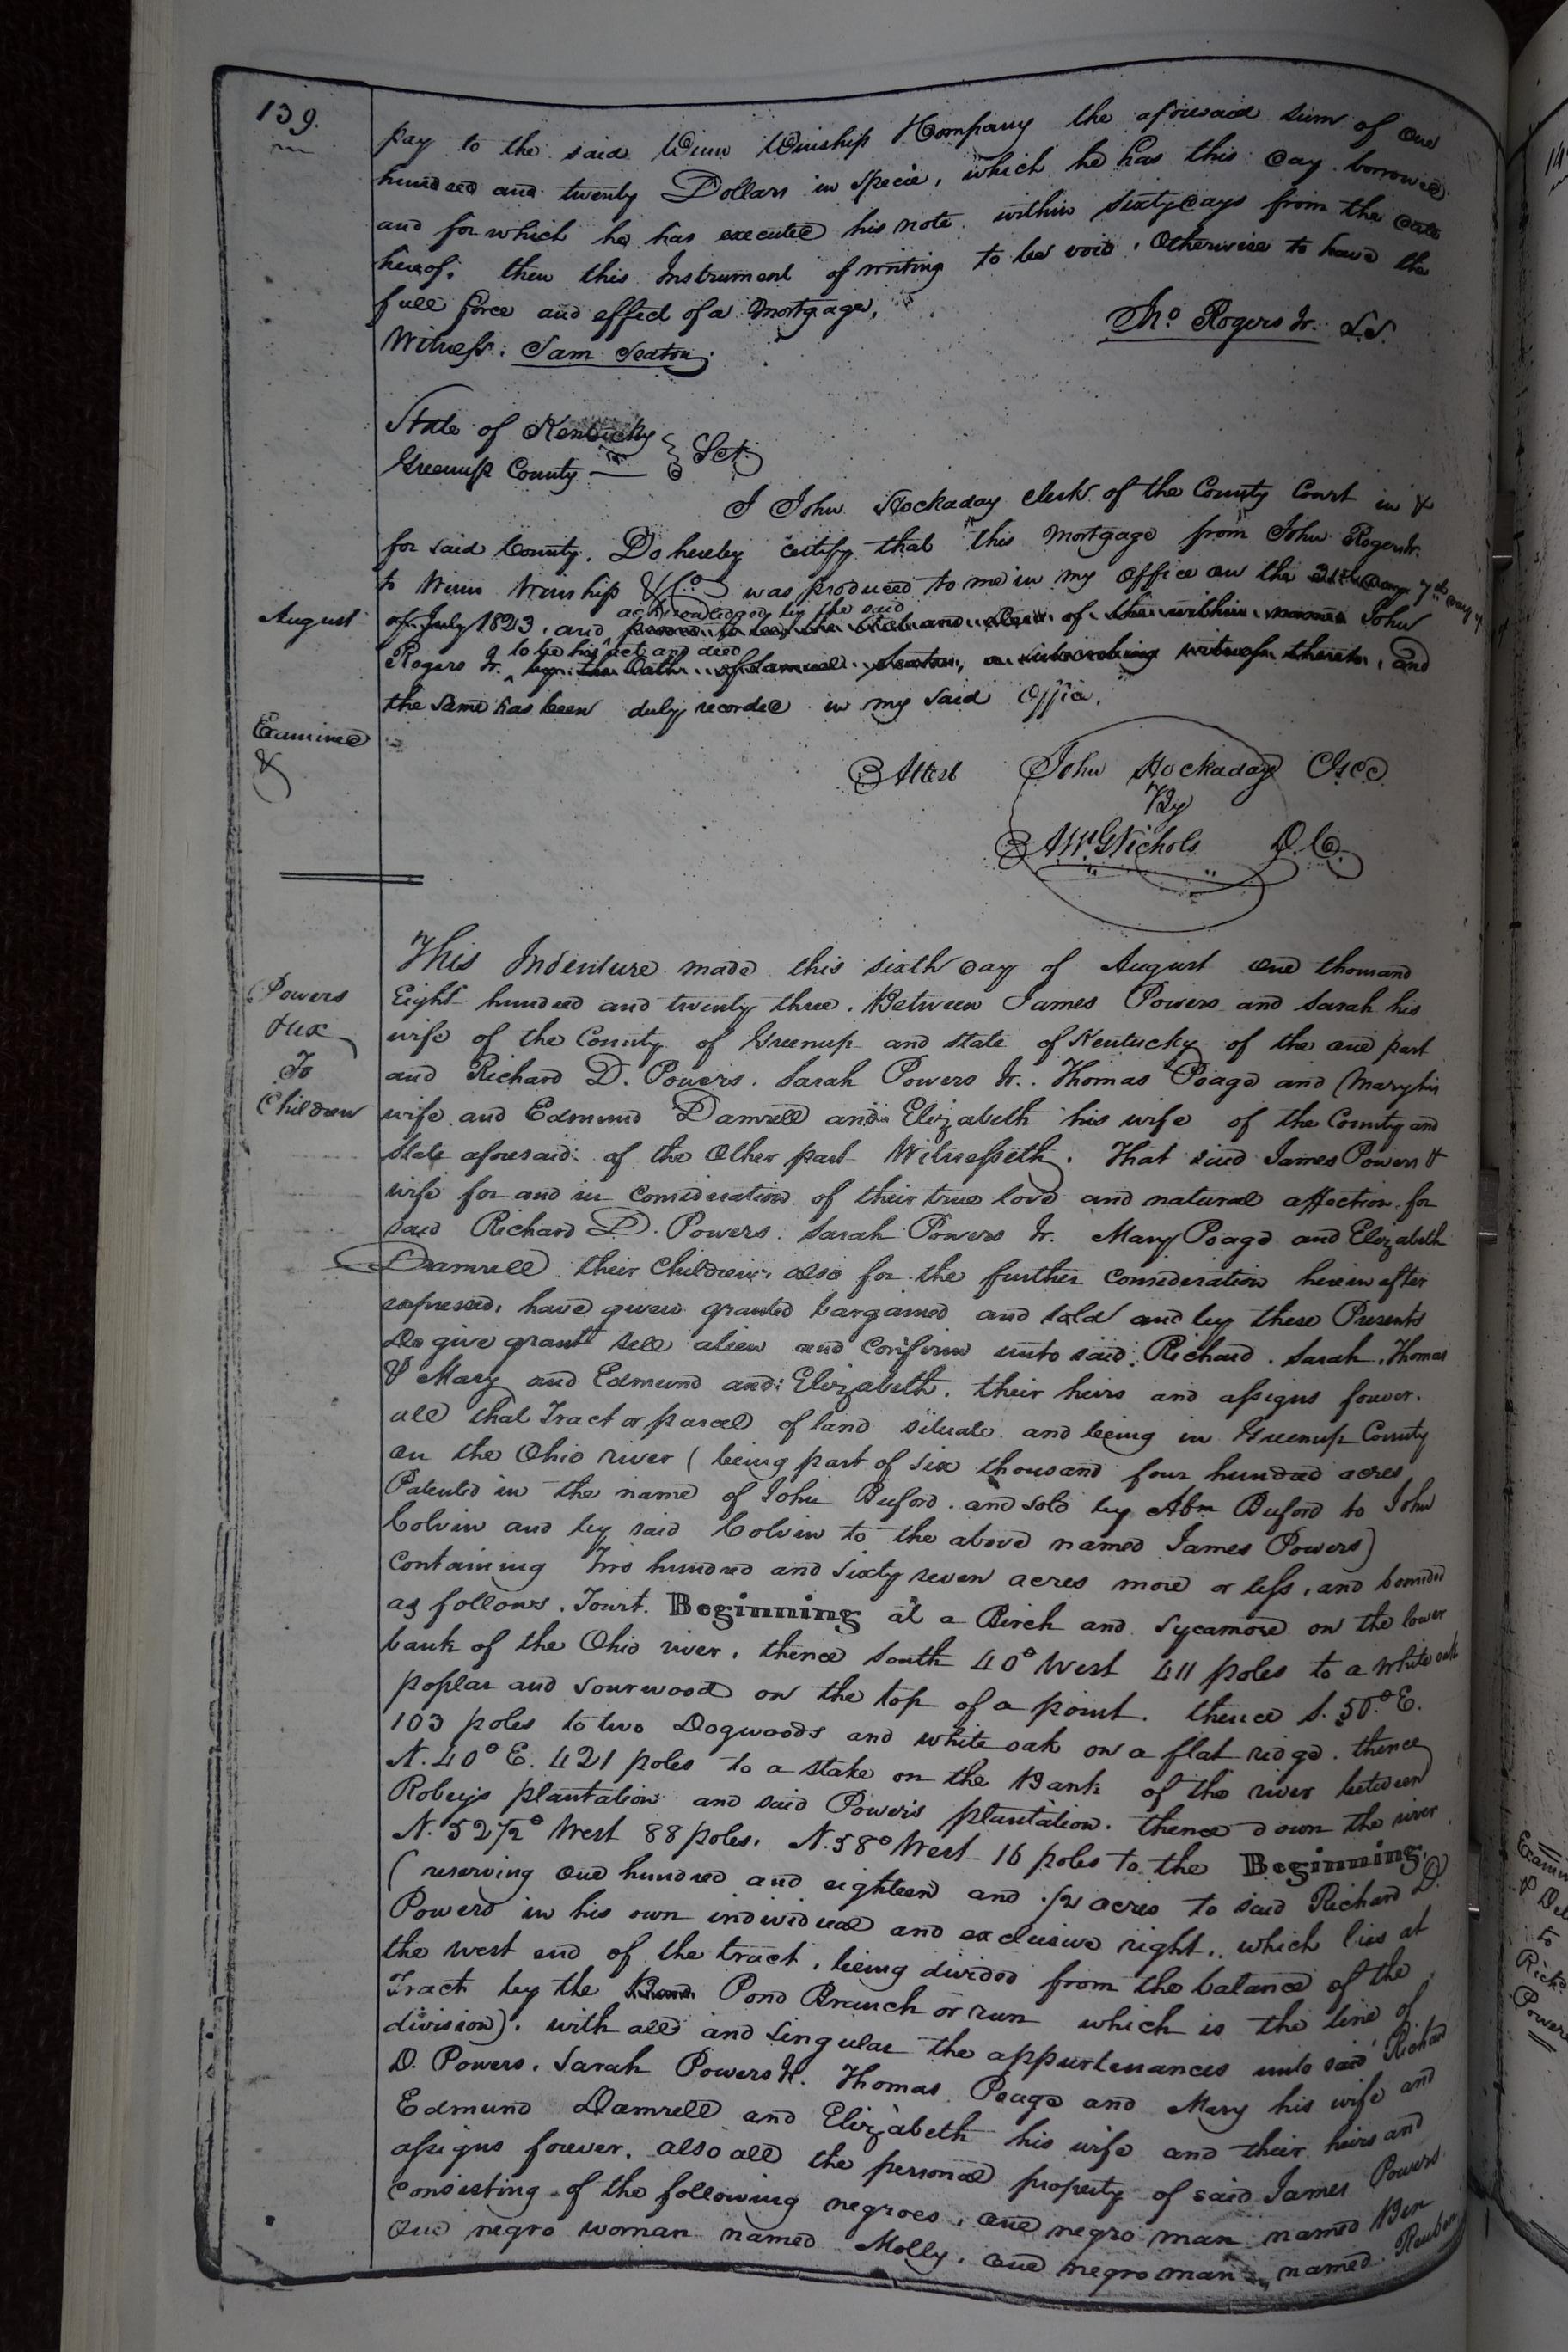 139.
pay to the said Winn Winship & Company the aforesaid sum of one
hundred and twenty Dollars in specie, which he has this day borrowed
and for which he has executed his note within sixty days from the date
hereof, then this Instrument of writing to be void, Otherwise to have the
full force and effect of a Mortgage.
Jno Rogers Jr. L.S.
Witness: Sam Seaton
State of Kentucky
Greenup County Sct.
I John Hockaday clerk of the County Court in &
for said County. Do hereby certify that this Mortgage from John Rogers Jr.
to Winn Winship & Co was produced to me in my office on the 21st day 7th day of
August
of July 1823. and acknowledged by the said John
Rogers Jr. to be his act and deed by the Oath of Samuel Seaton, a subscribing witness thereto, and
the same has been duly recorded in my said Office.
Examined
&
Attest John Hockaday C.G.C.C.
By
A.W. G Nichols D.C.
Powers
& ux
To
Children
This Indenture made this sixth day of August one thousand
Eight hundred and twenty three. Between James Powers and Sarah his
wife of the County of Greenup and state of Kentucky of the one part
and Richard D. Powers. Sarah Powers Jr. Thomas Poage and Mary his
wife and Edmund Damrell and Elizabeth his wife of the County and
state aforesaid of the Other part Witnesseth. That said James Powers &
wife for and in Consideration of their true love and natural affection for
said Richard D. Powers. Sarah Powers Jr. Mary Poage and Elizabeth
Damrell their Children, also for the further Consideration herein after
expressed, have given granted bargained and sold and by these Presents
do give grant sell alien and Confirm unto said Richard. Sarah. Thomas
& Mary and Edmund and Elizabeth. their heirs and assigns forever.
all that Tract or parcel of land situate and being in Greenup County
on the Ohio river (being part of six thousand four hundred acres
Patented in the name of John Buford. and sold by Abm Buford to John
Colvin and by said Colvin to the above named James Powers)
Containing Two hundred and sixty seven acres more or less, and bounded
as follows. Towit. Beginning at a Birch and Sycamore on the lower
bank of the Ohio river, thence South 40° West 411 poles to a white oak
poplar and sourwood on the top of a point. thence S. 50° E.
103 poles to two Dogwoods and white oak on a flat ridge. thence
N. 40° E. 421 poles to a stake on the Bank of the river between
Robeys plantation and said Powers plantation. thence down the river
N. 52 1/2° West 88 poles. N. 58° West 16 poles to the Beginning.
(reserving one hundred and eighteen and 1/2 acres to said Richard D.
Powers in his own individual and exclusive right, which lies at
the west end of the tract, being divided from the balance of the
Tract by the Pond Branch or run which is the line of
division). with all and singular the appurtenances unto said Richard
D. Powers. Sarah Powers Jr. Thomas Poage and Mary his wife and
Edmund Damrell and Elizabeth his wife and their heirs and
assigns forever. also all the personal property of said James Powers
Consisting of the following negroes, one negro man named Ben
One negro woman named Molly. one negro man named Reuben
Examin
to
Richd
Power